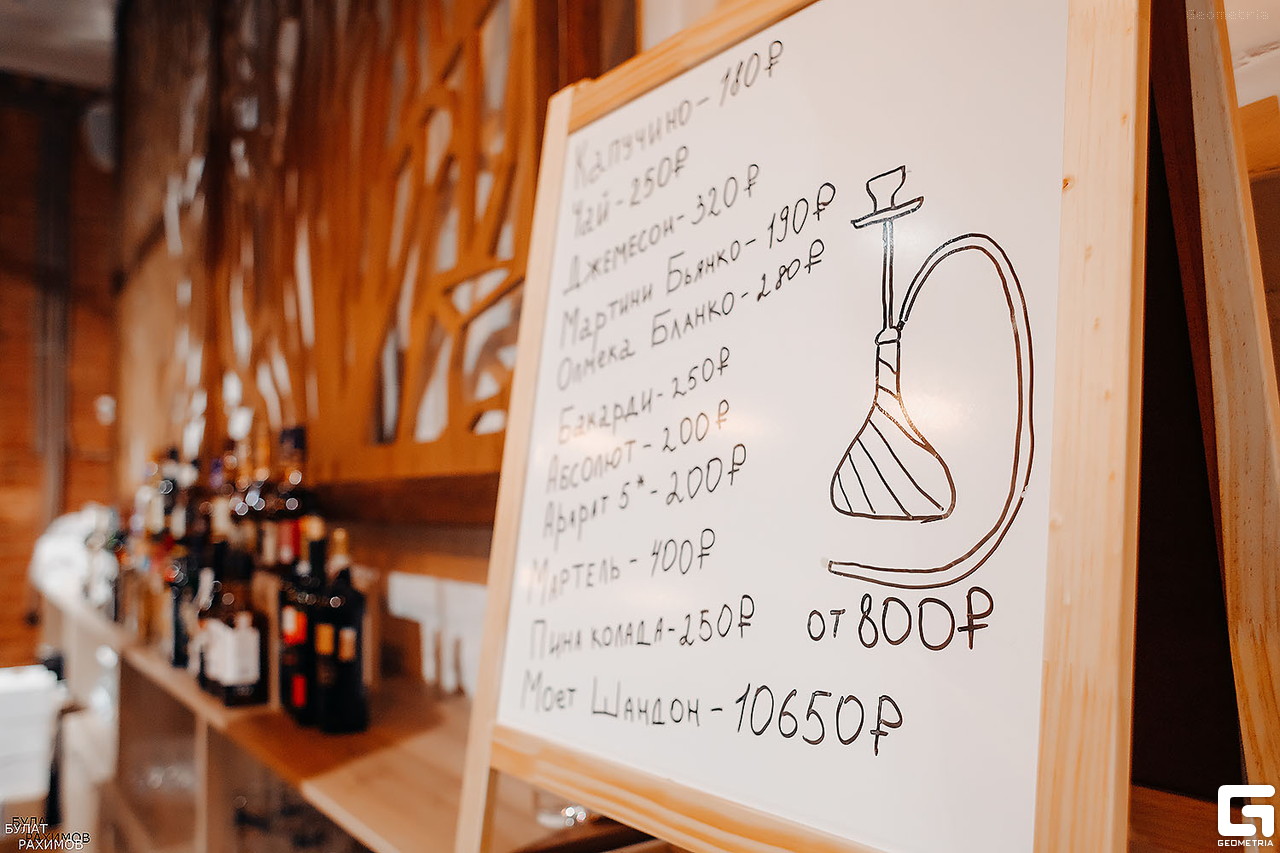 Капучино - 180₽
Чай - 250₽
Джемесон - 320₽
Мартини Бьянко - 190₽
Олмека Бланко - 280₽
Бакарди - 250₽
Абсолют - 200₽
Арарат 5* - 200₽
Мартель - 400₽
Пина колада - 250₽
Моет Шандон - 10650₽
от 800₽
Geometria
БУЛАТ
РАХИМОВ
GEOMETRIA